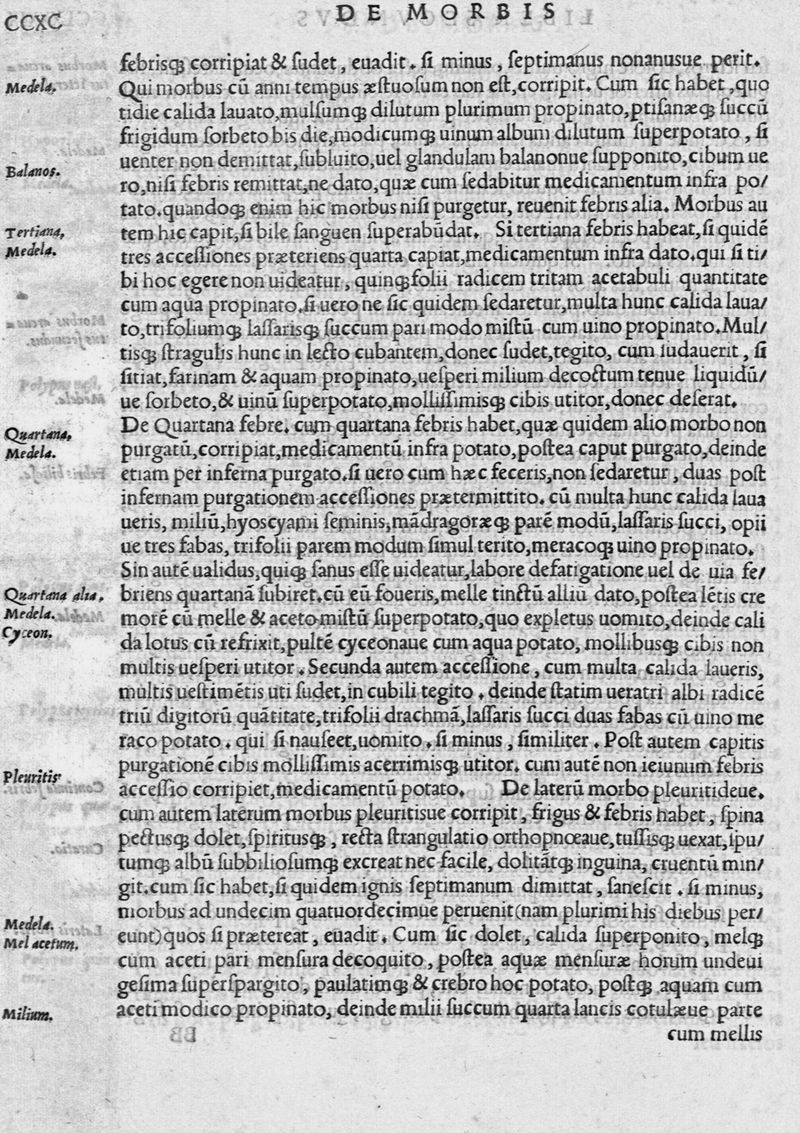 CCXC
DE MORBIS
febrisq; corripiat & ſudet, euadit. ſi minus, ſeptimanus nonanusue perit.
Medela.
Qui morbus cū anni tempus æſtuoſum non eſt, corripit. Cum ſic habet, quo
tidie calida lauato, mulſumq; dilutum plurimum propinato, ptiſanæq; ſuccū
frigidum ſorbeto bis die, modicumq; uinum album dilutum ſuperpotato, ſi
uenter non demittat, ſubluito, uel glandulam balanonue ſupponito, cibum ue
Balanos.
ro, niſi febris remittat, ne dato, quæ cum ſedabitur medicamentum infra po/
tato. quandoq; enim hic morbus niſi purgetur, reuenit febris alia. Morbus au
Tertiana,
tem hic capit, ſi bile ſanguen ſuperabūdat. Si tertiana febris habeat, ſi quidē
Medela.
tres acceſſiones præteriens quarta capiat, medicamentum infra dato. qui ſi ti/
bi hoc egere non uideatur, quinq; folii radicem tritam acetabuli quantitate
cum aqua propinato. ſi uero ne ſic quidem ſedaretur, multa hunc calida laua/
to, trifoliumq; laſſarisq; ſuccum pari modo miſtū cum uino propinato. Mul/
tisq; ſtragulis hunc in lecto cubantem, donec ſudet, tegito, cum iudauerit, ſi
ſitiat, farinam & aquam propinato, ueſperi milium decoctum tenue liquidū/
ue ſorbeto, & uinū ſuperpotato, molliſſimisq; cibis utitor, donec deſerat.
Quartana,
De Quartana febre. cum quartana febris habet, quæ quidem alio morbo non
Medela.
purgatū, corripiat, medicamentū infra potato, poſtea caput purgato, deinde
etiam per inferna purgato. ſi uero cum hæc feceris, non ſedaretur, duas poſt
infernam purgationem acceſſiones prætermittito. cū multa hunc calida laua
ueris, miliū, hyoscyami ſeminis, mādragoræq; parē modū, laſſaris ſucci, opii
ue tres fabas, trifolii parem modum ſimul terito, meracoq; uino propinato.
Sin autē ualidus, quiq; ſanus eſſe uideatur, labore defatigatione uel de uia fe/
Quartana alia,
briens quartanā ſubiret. cū eū foueris, melle tinctū alliū dato, poſtea lētis cre
Medela.
morē cū melle & aceto miſtū ſuperpotato, quo expletus uomito, deinde cali
Cyceon.
da lotus cū refrixit, pultē cyceonaue cum aqua potato, mollibusq; cibis non
multis ueſperi utitor. Secunda autem acceſſione, cum multa calida laueris,
multis ueſtimētis uti ſudet, in cubili tegito. deinde ſtatim ueratri albi radicē
triū digitorū quātitate, trifolii drachmā, laſſaris ſucci duas fabas cū uino me
raco potato. qui ſi nauſeet, uomito, ſi minus, ſimiliter. Poſt autem capitis
purgationē cibis molliſſimis acerrimisq; utitor. cum autē non ieiunum febris
Pleuritis
acceſſio corripiet, medicamentū potato. De laterū morbo pleuritideue.
cum autem laterum morbus pleuritisue corripit, frigus & febris habet, ſpina
pectusq; dolet, ſpiritusq;, recta ſtrangulatio orthopnœaue, tuſſisq; uexat, ſpu/
tumq; albū ſubbilioſumq; excreat nec facile, dolitātq; inguina, cruentū min/
git. cum ſic habet, ſi quidem ignis ſeptimanum dimittat, ſaneſcit. ſi minus,
morbus ad undecim quatuordecimue peruenit (nam plurimi his diebus per/
Medela.
eunt) quos ſi prætereat, euadit. Cum ſic dolet, calida ſuperponito, melq;
Mel acetum.
cum aceti pari menſura decoquito, poſtea aquæ menſuræ horum undeui
geſima ſuperſpargito, paulatimq; & crebro hoc potato, poſtq; aquam cum
Milium.
aceti modico propinato, deinde milii ſuccum quarta lancis cotulæue parte
cum mellis